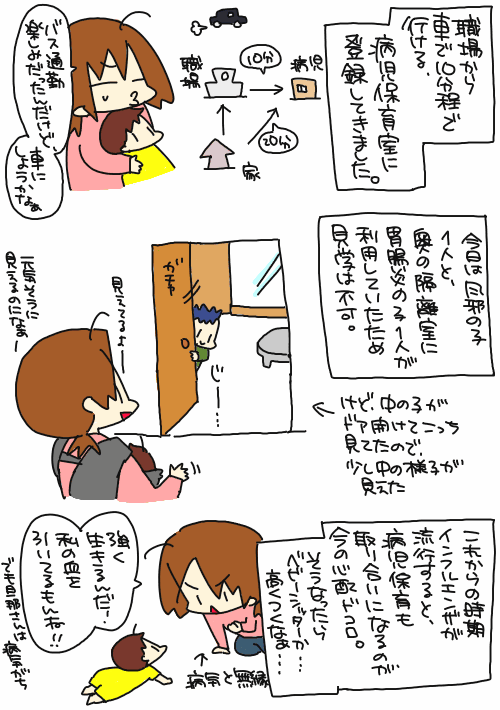 職場から
車で10分程で
行ける、
病児保育室に
登録してきました。
病児
10分
職場
20分
家
バス通勤
楽しみだったんだけど、
車に
しようかなぁ
今日は風邪の子
1人と、
奥の隔離室に
胃腸炎の子1人が
利用していたため
見学は不可。
ガチャ
じー……
見えてるよー
元気そうに
見えるのになぁー
けど、中の子が
ドア開けてこっち
見てたので、
少し中の様子が
見えた
これからの時期
インフルエンザが
流行すると、
病児保育も
取り合いになるのが
今の心配ドコロ。
そうなったら
ベビーシッターか…
高くつくなぁ……
病気と無縁
強く
生きるんだ!
私の血を
引いてるもんね!!
でも旦那さんは
病気がち